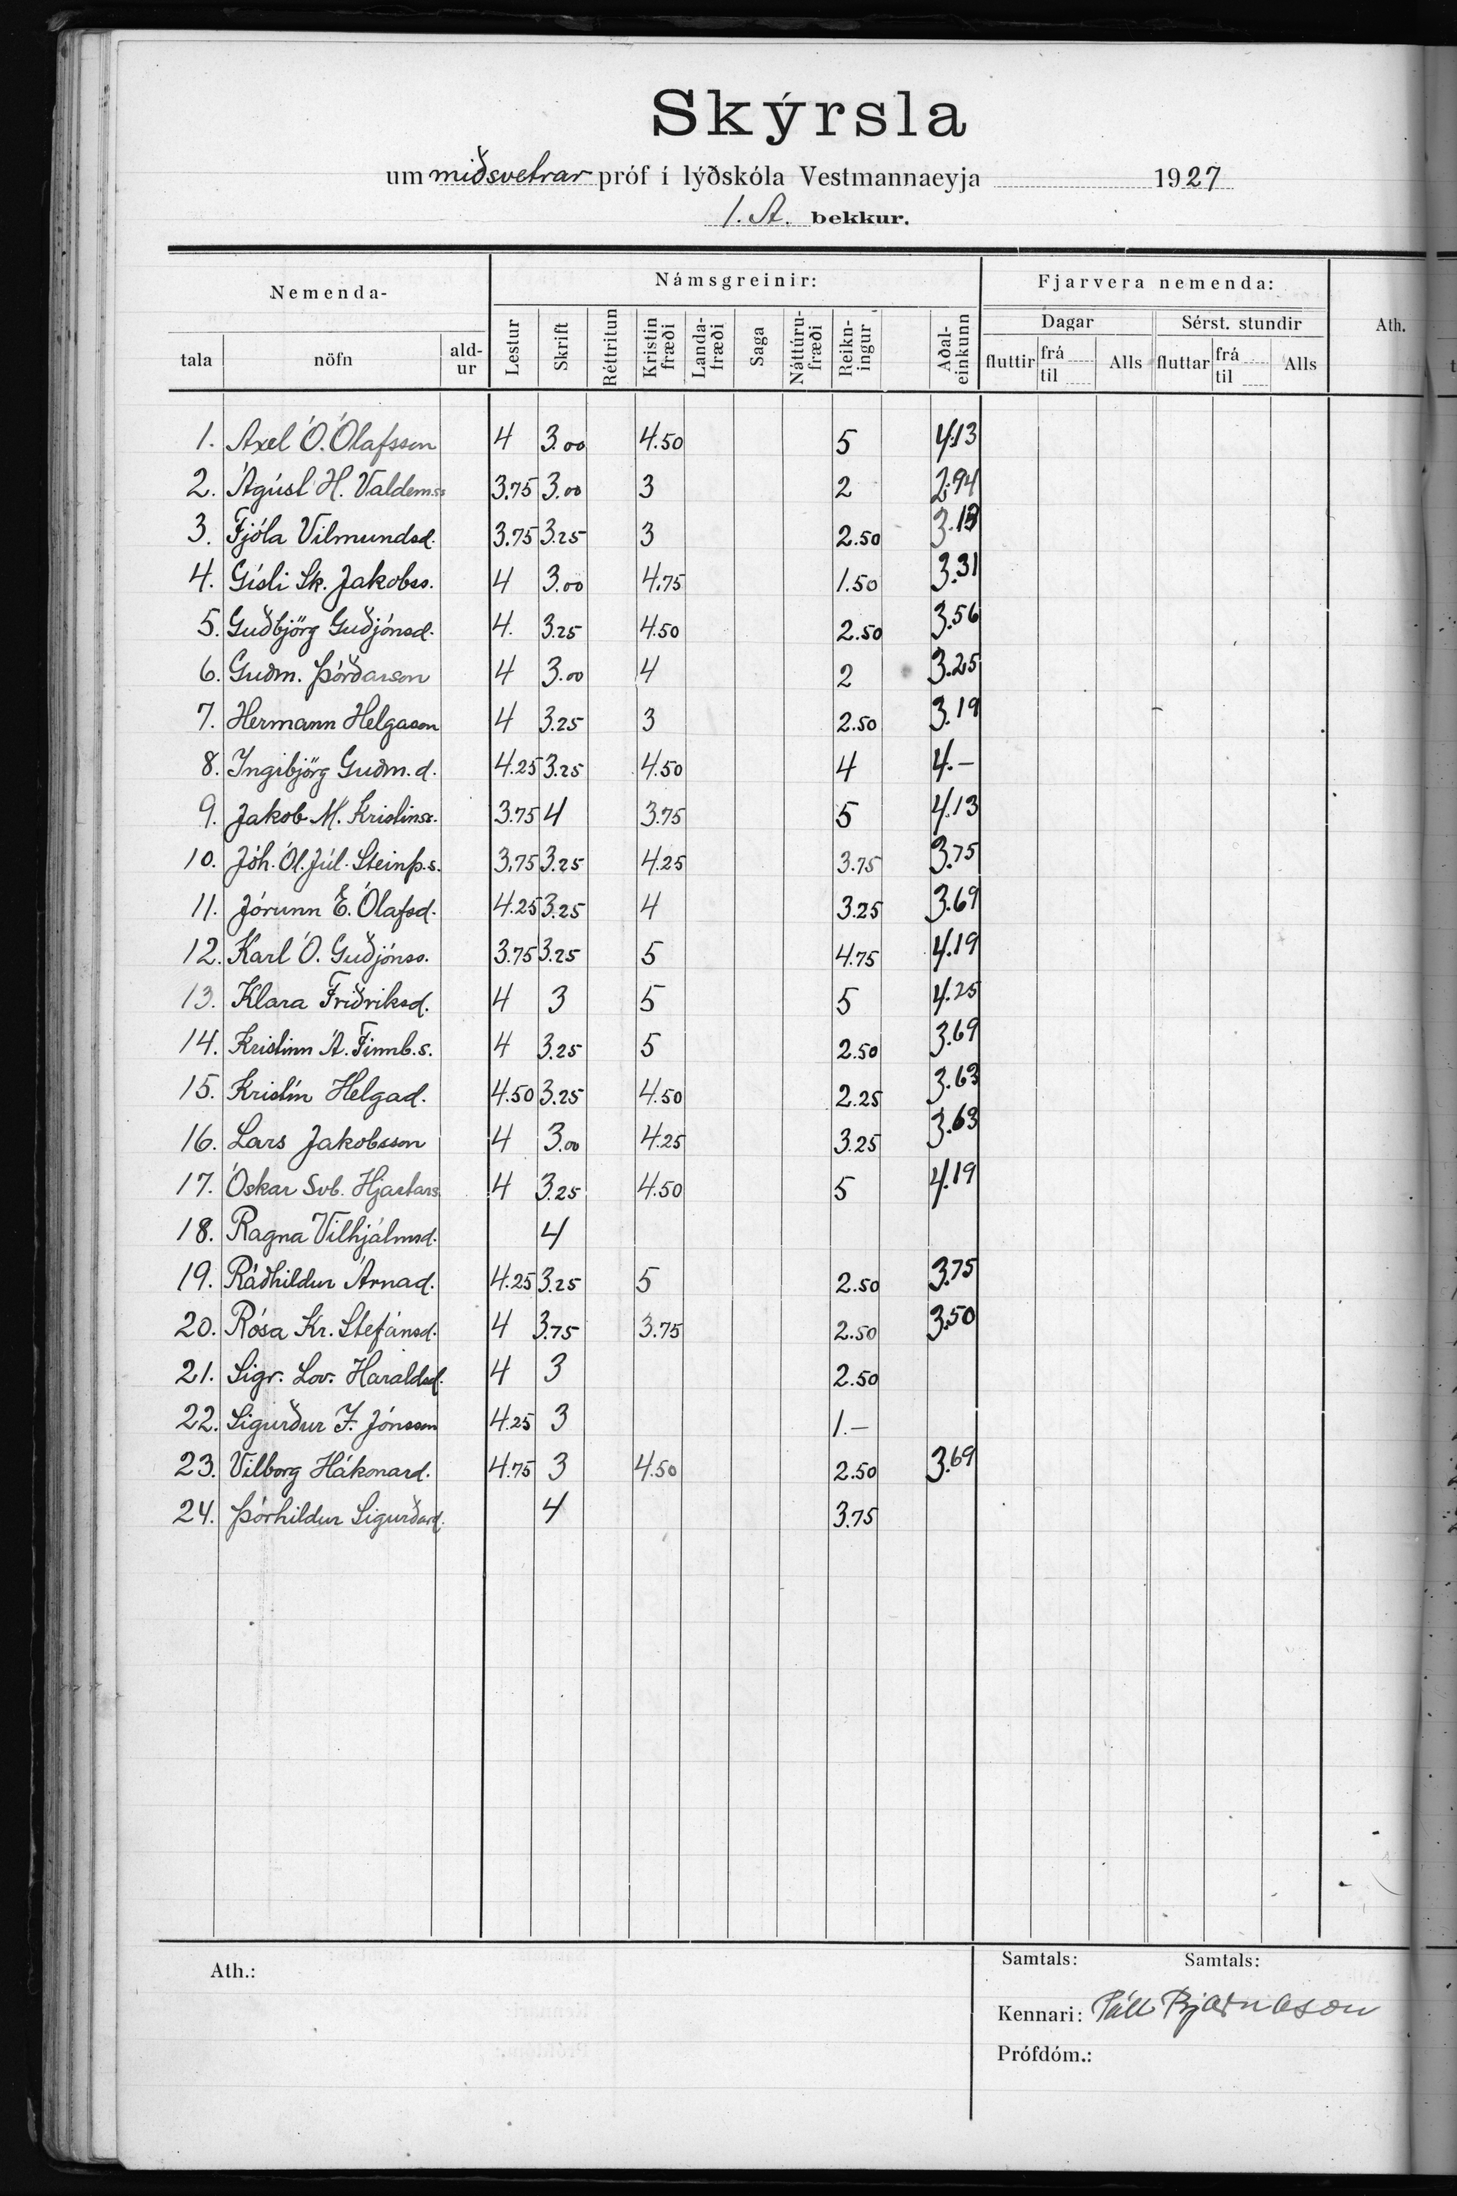 Skýrsla
um miðsvetrar próf í lýðskóla Vestmannaeyja 1927
1. A. bekkur.
Nemenda- Námsgreinir: Fjarvera nemenda: Ath.
Dagar Sérst. stundir
tala nöfn ald-ur Lestur Skrift Réttritun Kristin fræði Landa-fræði Saga Náttúru-fræði Reikn-ingur Aðal-einkunn fluttir frá til Alls fluttar frá til Alls
1. Axel Ó. Ólafsson 4 3.00 4.50 5 4.13
2. Ágúst H. Valdemss 3.75 3.00 3 2 2.94
3. Fjóla Vilmundsd. 3.75 3.25 3 2.50 3.13
4. Gísli Sk. Jakobss. 4 3.00 4.75 1.50 3.31
5. Guðbjörg Guðjónsd. 4. 3.25 4.50 2.50 3.56
6. Guðm. Þórðarson 4 3.00 4 2 3.25
7. Hermann Helgason 4 3.25 3 2.50 3.19
8. Ingibjörg Guðm.d. 4.25 3.25 4.50 4 4.–
9. Jakob M. Kristinss. 3.75 4 3.75 5 4.13
10. Jóh. Ól. Júl. Steinþ.s. 3.75 3.25 4.25 3.75 3.75
11. Jórunn E. Ólafsd. 4.25 3.25 4 3.25 3.69
12. Karl Ó. Guðjónss. 3.75 3.25 5 4.75 4.19
13. Klara Friðriksd. 4 3 5 5 4.25
14. Kristinn Á. Finnb.s. 4 3.25 5 2.50 3.69
15. Kristín Helgad. 4.50 3.25 4.50 2.25 3.63
16. Lars Jakobsson 4 3.00 4.25 3.25 3.63
17. Óskar Svb. Hjartars. 4 3.25 4.50 5 4.19
18. Ragna Vilhjálmsd. 4
19. Ráðhildur Árnad. 4.25 3.25 5 2.50 3.75
20. Rósa Kr. Stefánsd. 4 3.75 3.75 2.50 3.50
21. Sigr. Lov. Haraldsd. 4 3 2.50
22. Sigurður F. Jónsson 4.25 3 1.–
23. Vilborg Hákonard. 4.75 3 4.50 2.50 3.69
24. Þórhildur Sigurðard. 4 3.75
Ath.: Samtals: Samtals:
Kennari: Páll Bjarnason
Prófdóm.: